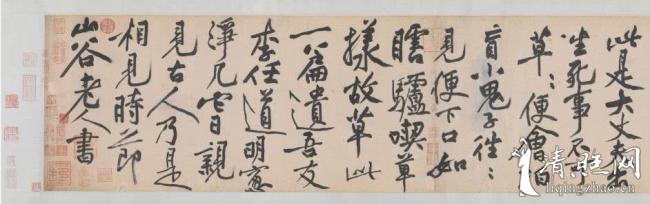 此是大丈夫出
生死事不可
草〻便會拍
盲小鬼子往〻
見便下口如
瞎驢喫草
樣故草此
一篇遺吾友
李任道明窻
淨几它日親
見古人乃是
相見時節
山谷老人書
liqingzhao.cn